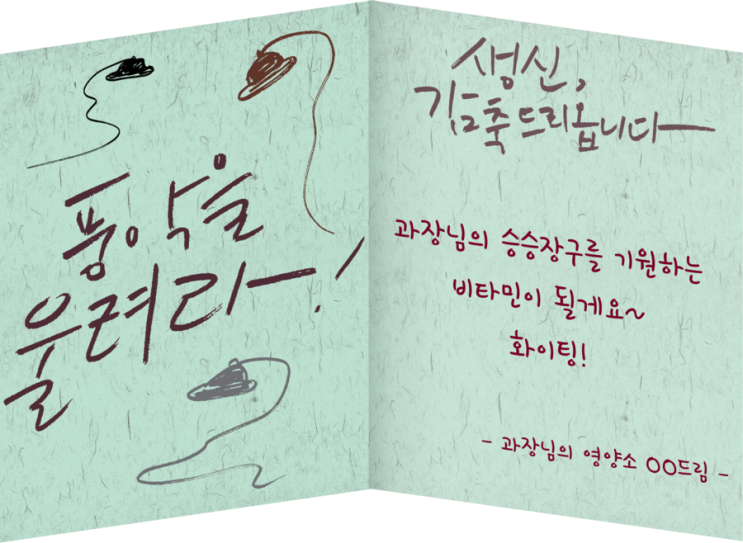 풍악을
울려라!
생신,
감축드리옵니다
과장님의 승승장구를 기원하는
비타민이 될게요~
화이팅!
- 과장님의 영양소 OO드림 -